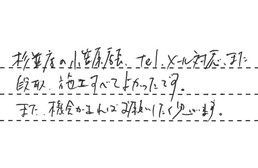 杉並店の小笠原様、Tel、メール対応、また
段取、施工すべてよかったです。
また機会があればお願いしたく思います。